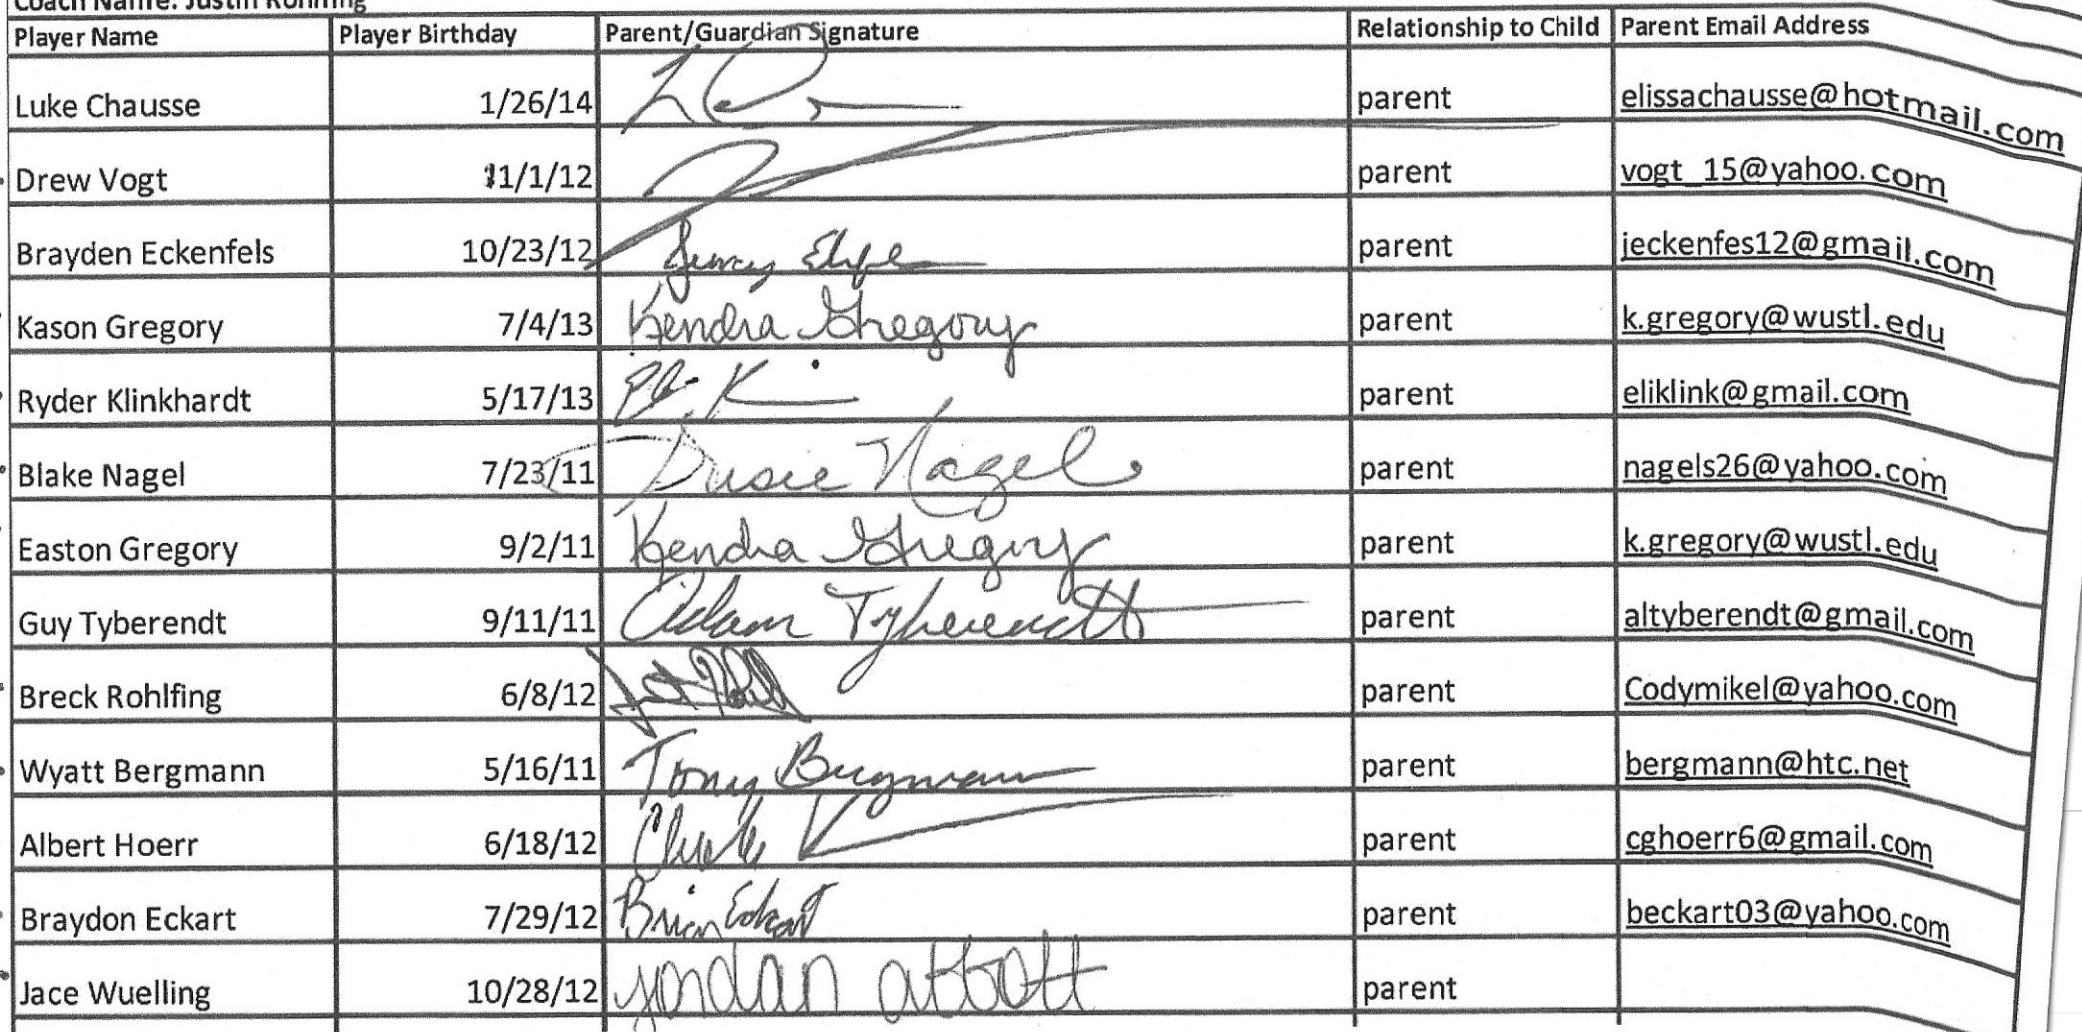 Coach Name: Justin Rohlfing
Player Name Player Birthday Parent/Guardian Signature Relationship to Child Parent Email Address
Luke Chausse 1/26/14 parent elissachausse@hotmail.com
Drew Vogt 11/1/12 parent vogt_15@yahoo.com
Brayden Eckenfels 10/23/12 parent jeckenfes12@gmail.com
Kason Gregory 7/4/13 Kendra Gregory parent k.gregory@wustl.edu
Ryder Klinkhardt 5/17/13 parent eliklink@gmail.com
Blake Nagel 7/23/11 Susie Nagel parent nagels26@yahoo.com
Easton Gregory 9/2/11 Kendra Gregory parent k.gregory@wustl.edu
Guy Tyberendt 9/11/11 Adam Tyberendt parent altyberendt@gmail.com
Breck Rohlfing 6/8/12 parent Codymikel@yahoo.com
Wyatt Bergmann 5/16/11 Tony Bergmann parent bergmann@htc.net
Albert Hoerr 6/18/12 parent cghoerr6@gmail.com
Braydon Eckart 7/29/12 Brian Eckart parent beckart03@yahoo.com
Jace Wuelling 10/28/12 jordan abbott parent